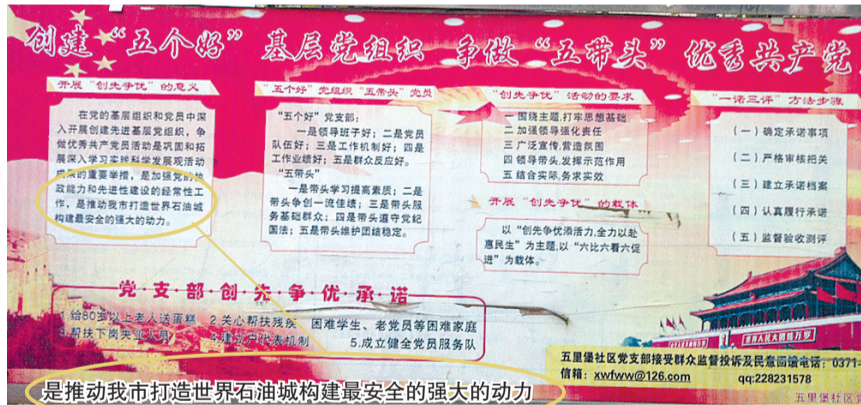 创建“五个好” 基层党组织 争做“五带头”优秀共产党
开展“创先争优”的意义
在党的基层组织和党员中深
入开展创建先进基层党组织，争
做优秀共产党员活动是巩固和拓
展深入学习实践科学发展观活动
成果的重要举措，是加强党的执
政能力和先进性建设的经常性工
作，是推动我市打造世界石油城
构建最安全的强大的动力。
“五个好”党组织“五带头”党员
“五个好”党支部：
一是领导班子好；二是党员
队伍好；三是工作机制好；四是
工作业绩好；五是群众反应好。
“五带头”
一是带头学习提高素质；二是
带头争创一流佳绩；三是带头服
务基础群众；四是带头遵守党纪
国法；五是带头维护团结稳定。
“创先争优”活动的要求
一 围绕主题,打牢思想基础
二 加强领导强化责任
三 广泛宣传,营造氛围
四 领导带头,发挥示范作用
五 结合实际,务求实效
开展“创先争优”的载体
以“创先争优添活力,全力以赴
惠民生”为主题,以“六比六看六促
进”为载体。
“一诺三评”方法步骤
（一）确定承诺事项
（二）严格审核把关
（三）建立承诺档案
（四）认真履行承诺
（五）监督验收测评
党·支·部·创·先·争·优·承·诺
1 给80岁以上老人送蛋糕 2 关心帮扶残疾 困难学生、老党员等困难家庭
3 帮扶下岗失业人员 4 建立户代表机制 5.成立健全党员服务队
五里堡社区党支部接受群众监督投诉及民意回馈电话：0371-
信箱：xwfww@126.com qq:228231578
五里堡社区党
是推动我市打造世界石油城构建最安全的强大的动力